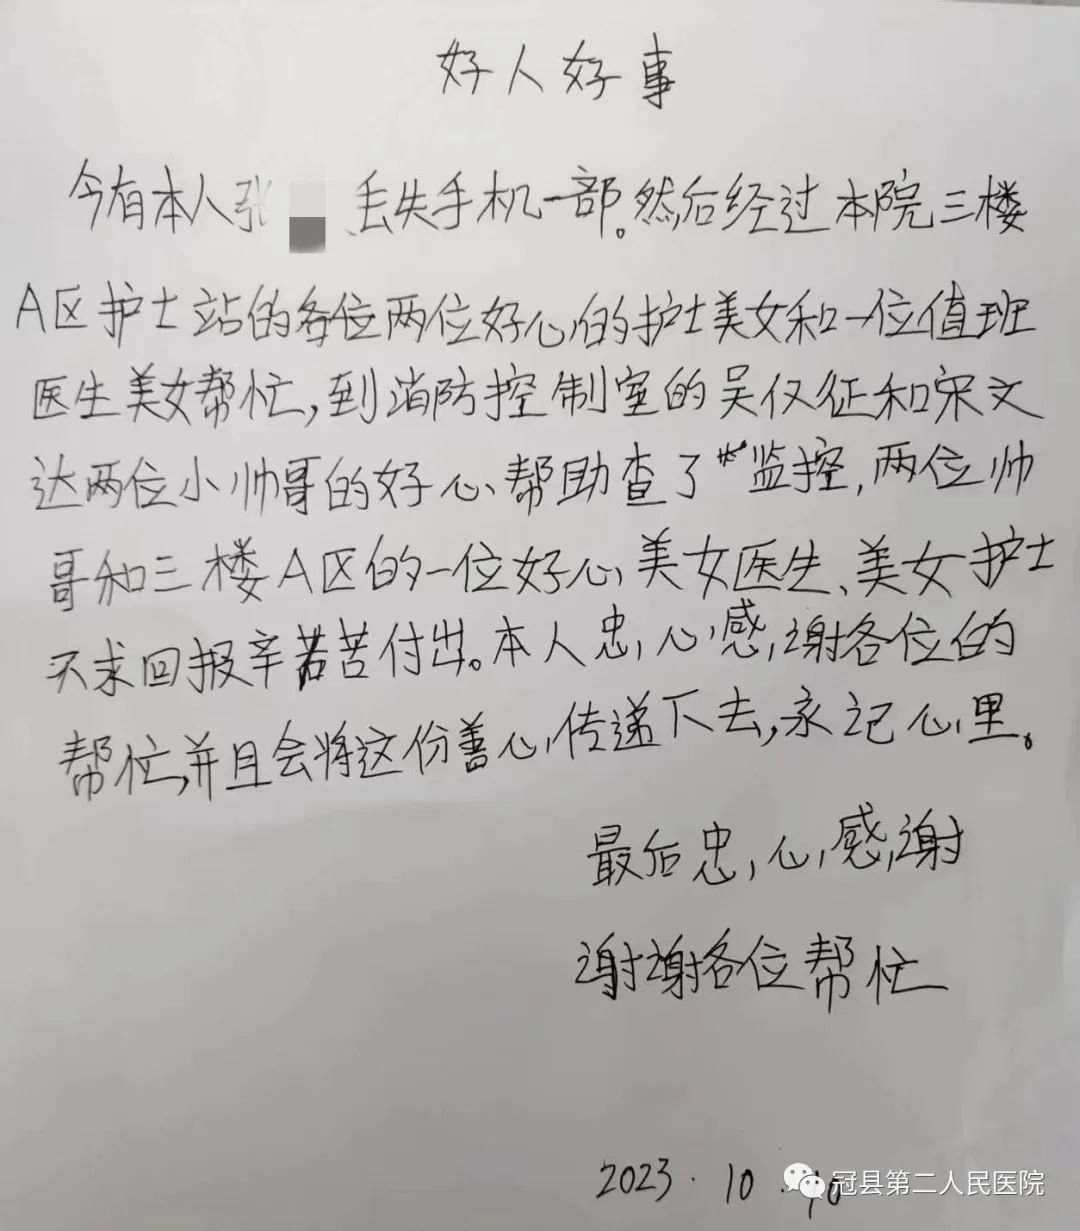 好人好事
今有本人张 、丢失手机一部。然后经过本院三楼
A区护士站的各位两位好心的护士美女和一位值班
医生美女帮忙,到消防控制室的吴仪征和宋文
达两位小帅哥的好心、帮助查了监控,两位帅
哥和三楼A区的一位好心美女医生、美女护士
不求回报辛苦付出。本人忠心感谢各位的
帮忙,并且会将这份善心传递下去,永记心里。
最后忠心感谢
谢谢各位帮忙
2023.10.10
冠县第二人民医院